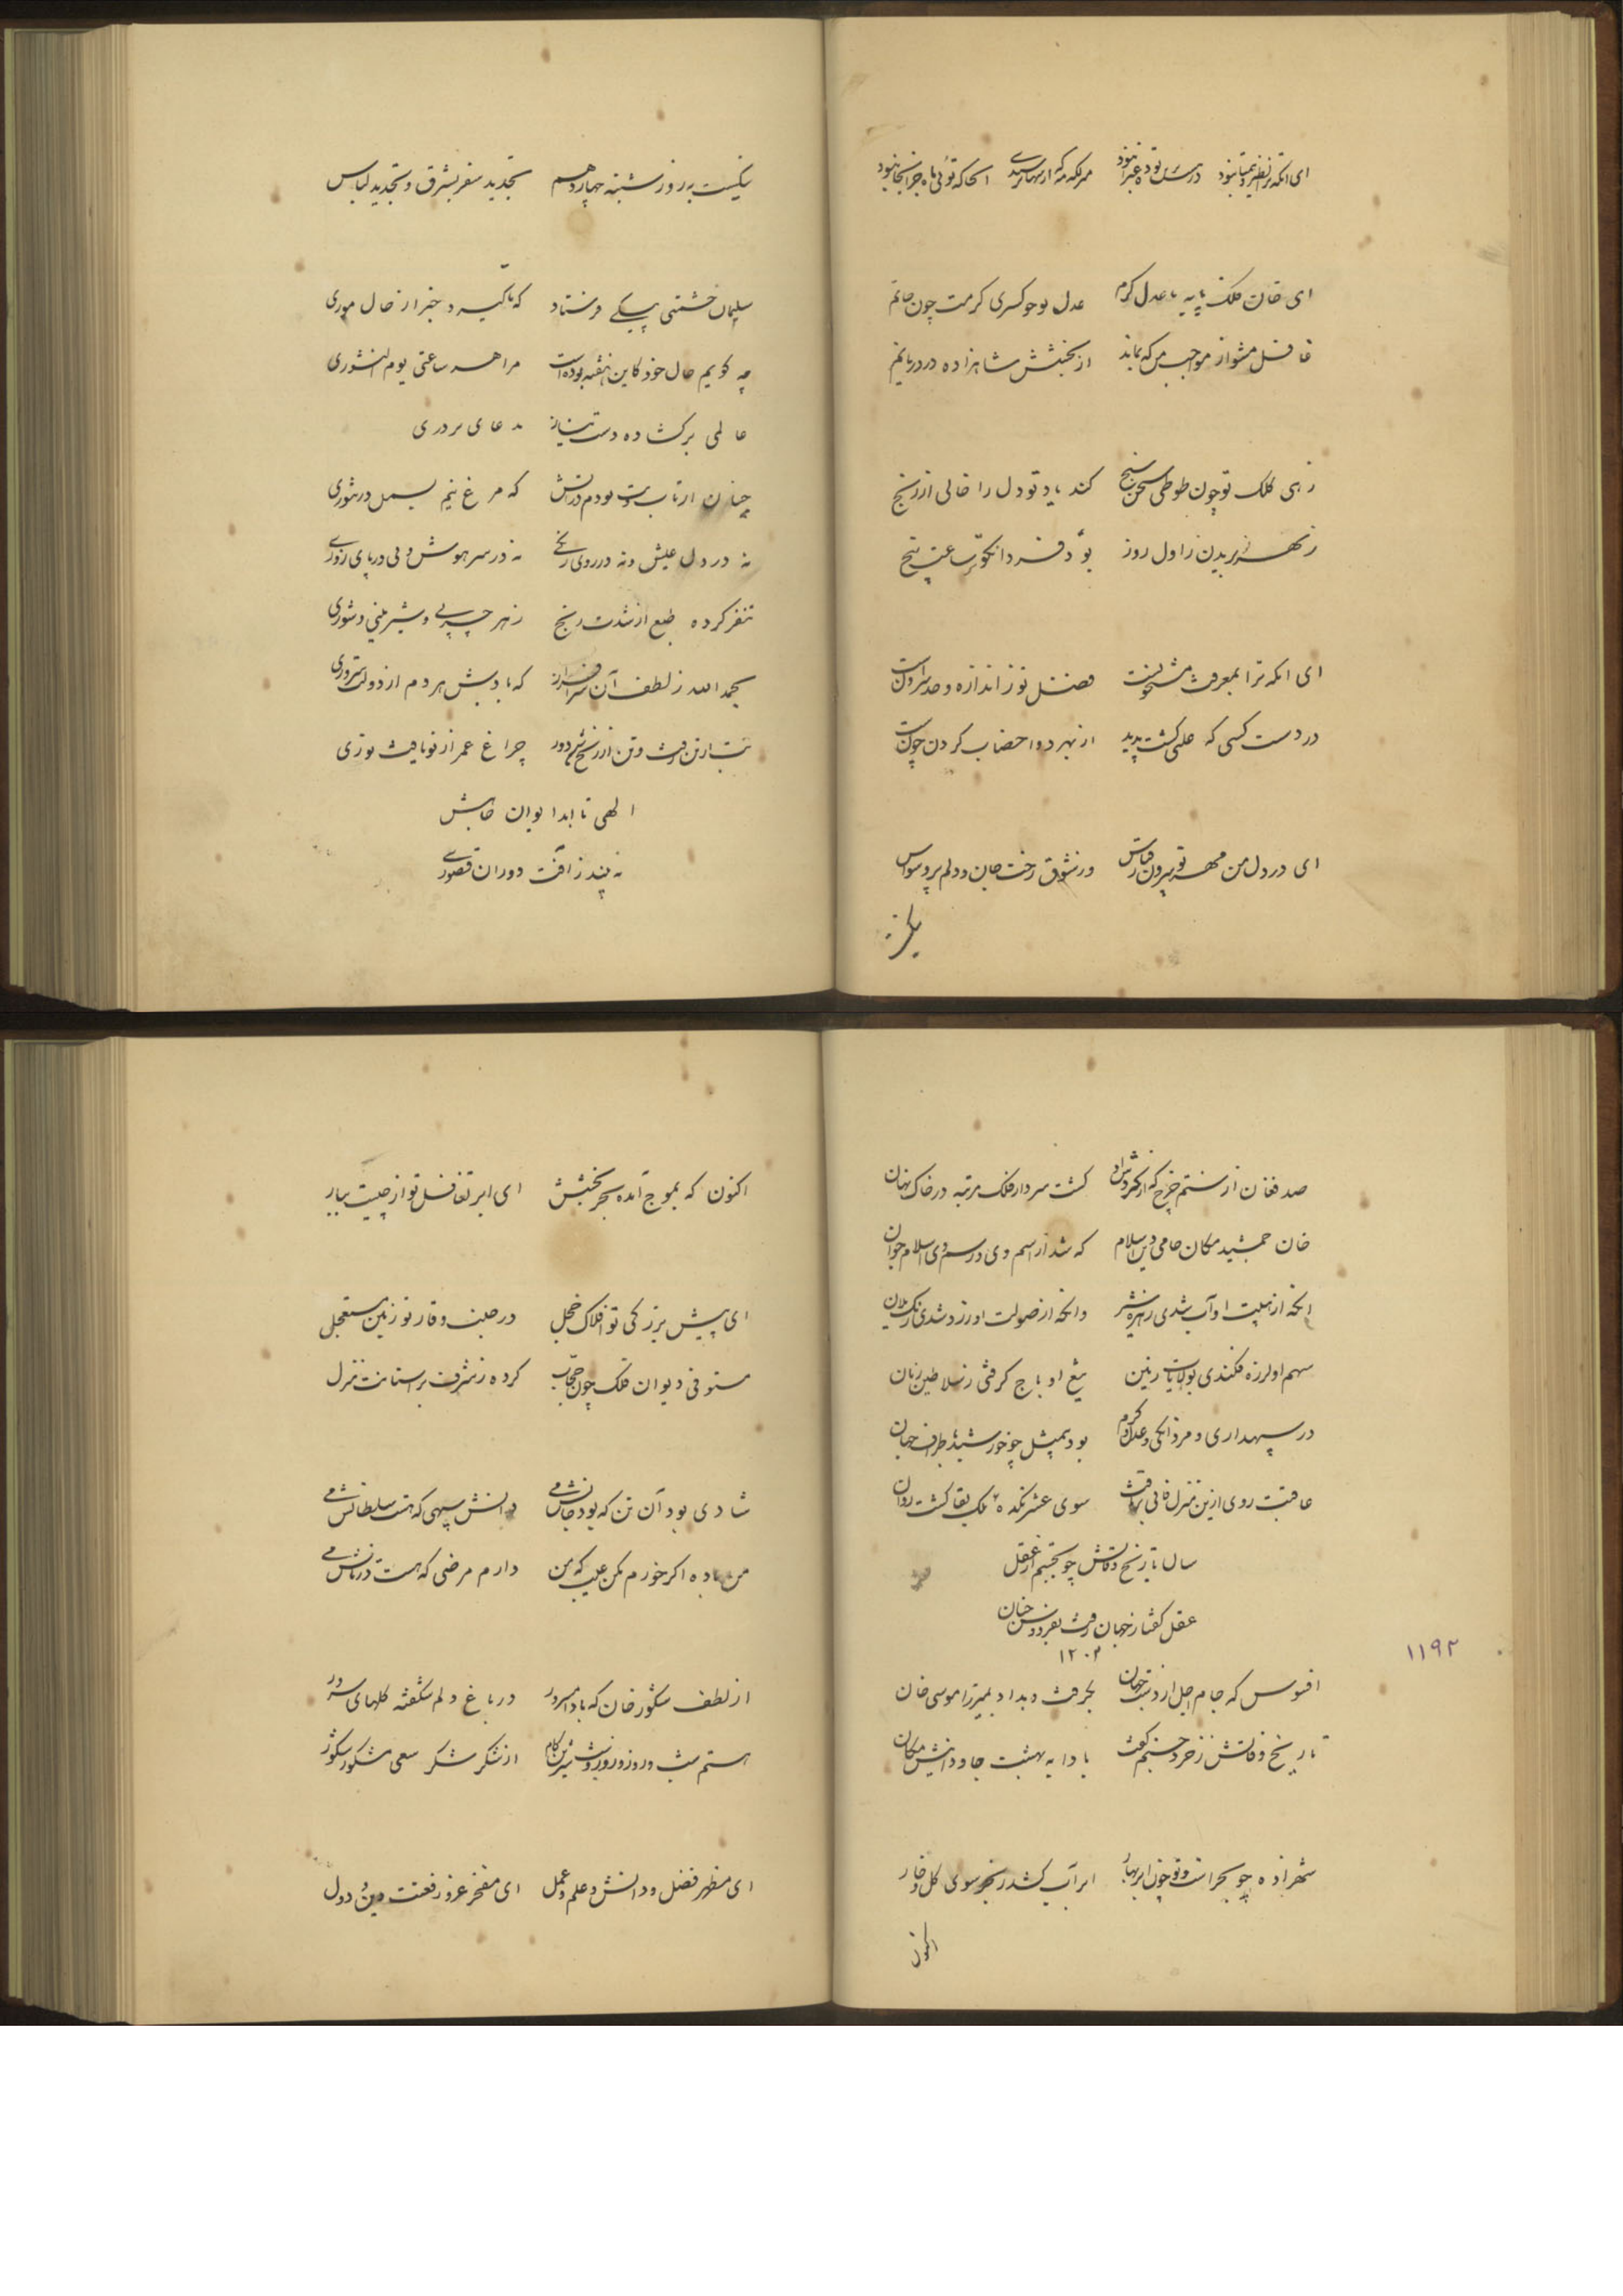 ای آنکه ترا نظیر و همتا نبود در سر تو ده نبود هر که که از سهار اینجا که توئی ماه چرا اینجا نبود
ای خان ملک پایه با عدل و کرم عدل تو چو کسری کرمت چون حاتم
غافل مشو از مواجب من که نماند از بخشش شاهزاده در دریا نم
زهی کلک تو چون طوطی سخن سنج کند یاد تو دل را خالی از رنج
ز بهر بریدن ز اول روز بود فردا نکو تا ساعت پنج
ای آنکه ترا بمعرفت مشحونست فضل تو ز اندازه و حد بیرونست
در دست کسی که علتی گشت پدید از بهر دوا خضاب کردن چونست
ای در دل من مهر تو بیرون ز قیاس وز شوق رخت جان و دلم پر وسواس
نیکست
نیکست به روز شنبه چهاردهم تجدید سفر بشرق و تجدید لباس
سلیمان حشمتی پیکی فرستاد که تا گیرد خبر از حال موری
چه گویم حال خود کاین هفته بوده است مرا هر ساعتی یوم النشوری
عالمی برگشاده دست نیاز
چنان از تاب تب بودم در آتش که مرغ نیم بسمل در تنوری
نه در دل عیش و نه در روی رنگی نه در سر هوش و نی در پای زوری
تنفر کرده طبع از شدت رنج ز هر چربی و شیرینی و شوری
بحمد الله ز لطف آن سرافراز که بادش هر دم از دولت سروری
تب از تن رفت و تن از رنج شد دور چراغ عمر از نو یافت نوری
الهی تا ابد ایوان جاهش
نه بیند ز آفت دوران قصوری
صد فغان از ستم چرخ که از گردش او گشت سردار فلک مرتبه در خاک نهان
خان جمشید مکان حامی دین اسلام که شد از اسم وی و رسم وی اسلام جوان
آنکه از هیبت او آب شدی زهره شیر وانکه از صولت او زرد شدی رنگ یلان
سهم او لرزه فکندی بولایات زمین تیغ او باج گرفتی ز سلاطین زمان
در سپهداری و مردانگی و عدل و کرم بود بیمثل چو خورشید باطراف جهان
عاقبت روی ازین منزل فانی برتافت سوی عشرتکده ملک بقا گشت روان
سال تاریخ وفاتش چو بجستم از عقل
عقل گفتا ز جهان رفت بفردوس جنان
۱۲۰۲
۱۱۹۲
افسوس که جام اجل از دست جهان بگرفت و بداد بمیرزا موسی خان
تاریخ وفاتش ز خرد جستم گفت بادا به بهشت جاودانیش مکان
شهزاده چو بحر است و تو چون ابر بهار ابر آب کشد ز بحر سوی گل و خار
اکنون
اکنون که بموج آمده بحر بخشش ای ابر تغافل تو از چیست ببار
ای پیش بزرگی تو افلاک خجل در جنب وقار تو زمین مستعجل
مستوفی دیوان فلک چون حجاب کرده ز شرف بر آستانت منزل
شادی بود آن تن که بود جانش می دانش سپهی که هست سلطانش می
من باده اگر خورم مکن عیب که من دارم مرضی که هست درمانش می
از لطف شکور خان که بادا مسرور در باغ دلم شکفته گلهای سرور
هستم شب و روز و روز و شب شیرین کام از شکر شکر سعی مشکور شکور
ای مظهر فضل و دانش و علم و عمل ای مفخر عز و رفعت دین و دول